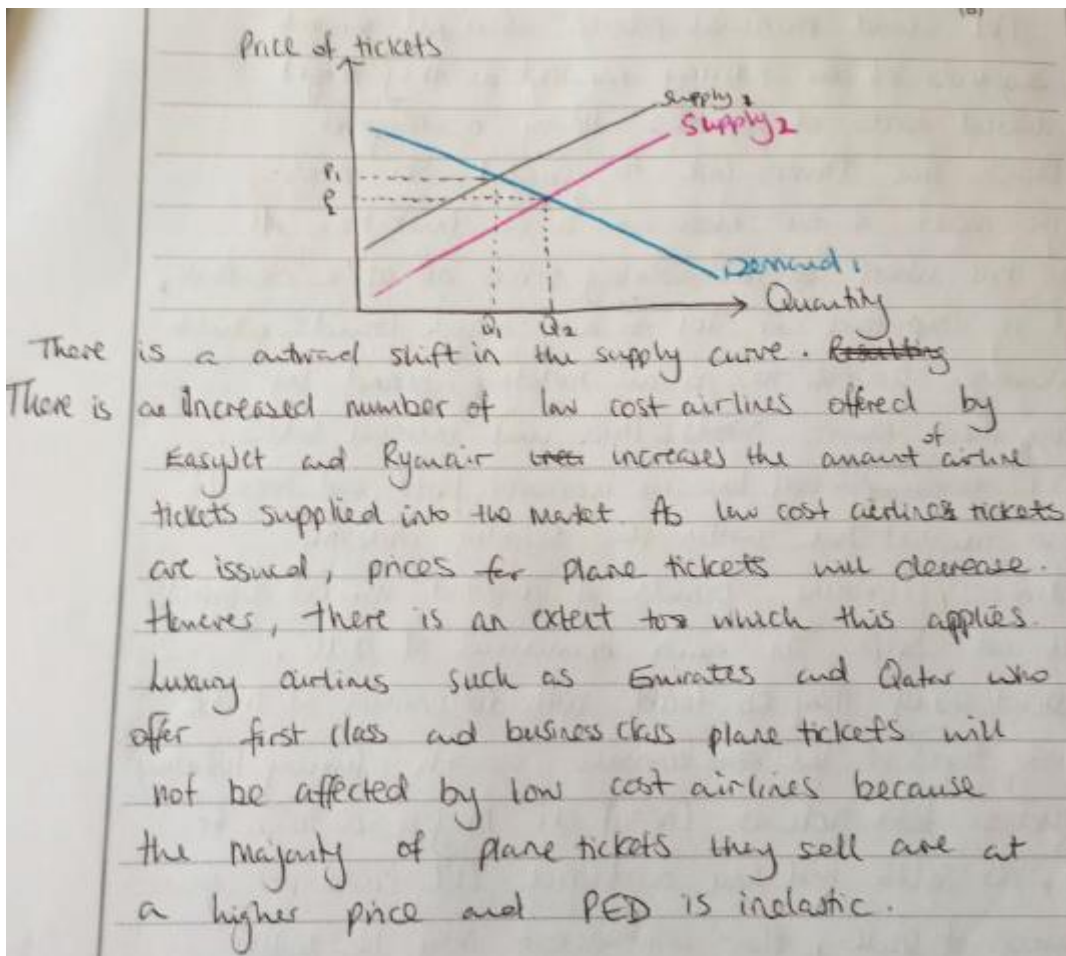 Price of tickets
Supply 1
Supply 2
P1
P2
Demand 1
Quantity
Q1 Q2
There is a outward shift in the supply curve. Resulting
There is an increased number of low cost airlines offered by
EasyJet and Ryanair increases the amount of airline
tickets supplied into the market. As low cost airlines tickets
are issued, prices for plane tickets will decrease.
However, there is an extent to which this applies.
Luxury airlines such as Emirates and Qatar who
offer first class and business class plane tickets will
not be affected by low cost airlines because
the majority of plane tickets they sell are at
a higher price and PED is inelastic.